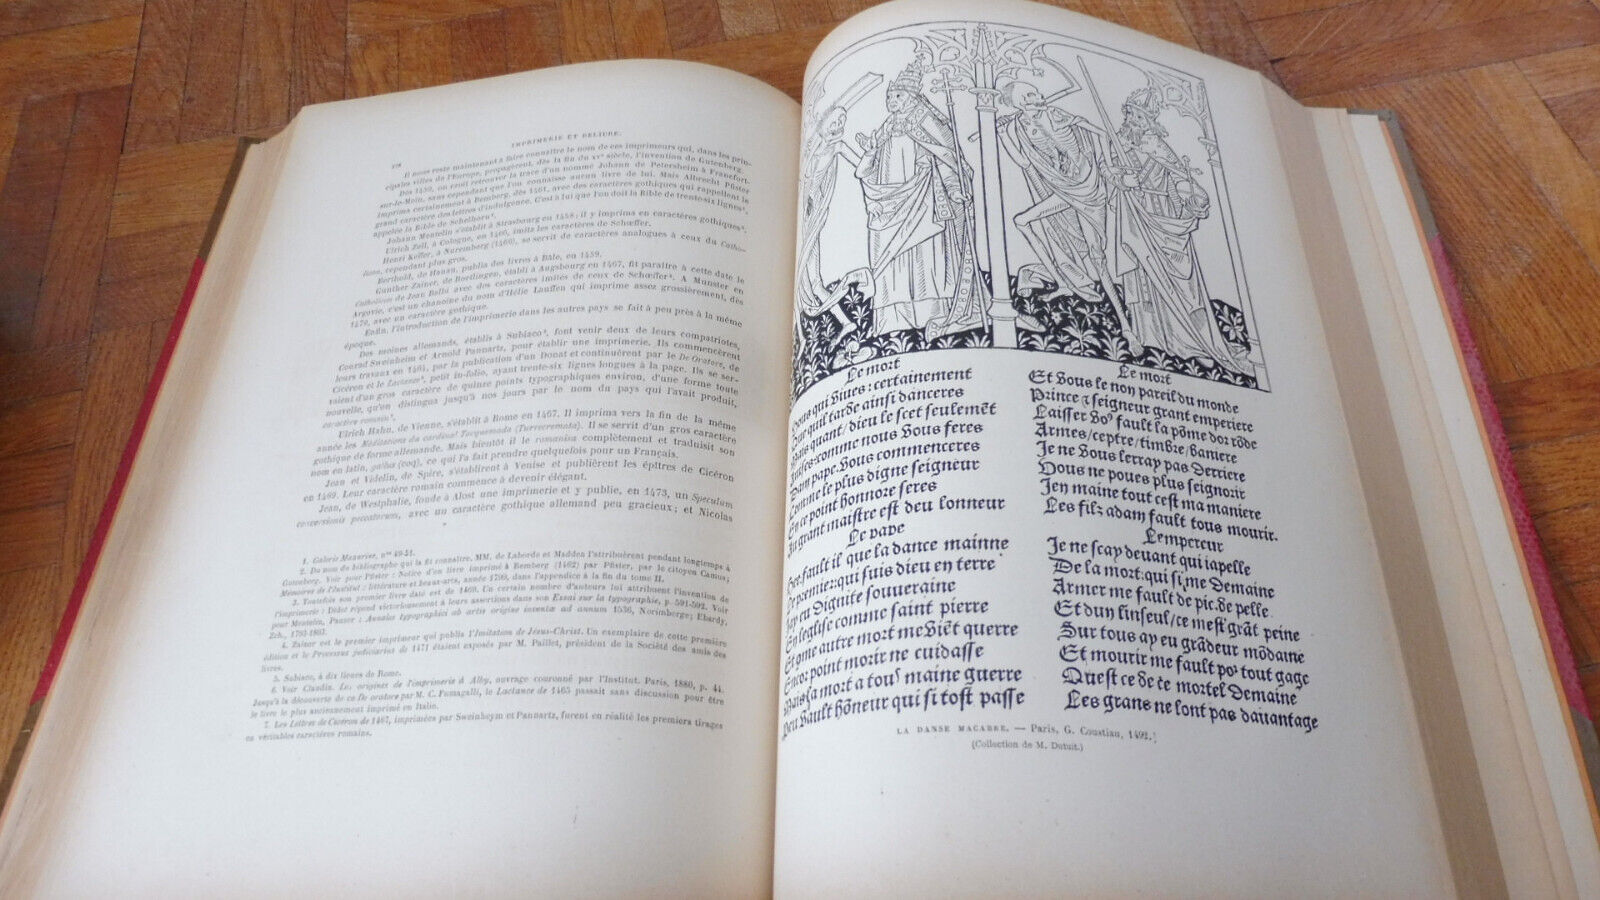 IMPRIMERIE ET RELIURE.
Il nous reste maintenant à faire connaître le nom de ces imprimeurs qui, dans les prin-
cipales villes de l'Europe, propagèrent, dès la fin du XVe siècle, l'invention de Gutenberg.
Dès 1459, on croit retrouver la trace d'un nommé Johann de Petersheim à Francfort-
sur-le-Mein, sans cependant que l'on connaisse aucun livre de lui. Mais Albrecht Pfister
imprima certainement à Bemberg, dès 1461, avec des caractères gothiques qui rappellent le
grand caractère des lettres d'indulgence. C'est à lui que l'on doit la Bible de trente-six lignes¹,
appelée la Bible de Schelhorn².
Johann Mentelin s'établit à Strasbourg en 1458; il y imprima en caractères gothiques³.
Ulrich Zell, à Cologne, en 1466, imita les caractères de Schœffer.
Henri Keffer, à Nuremberg (1460), se servit de caractères analogues à ceux du Catho-
licon, cependant plus gros.
Berthold, de Hanau, publia des livres à Bâle, en 1459.
Gunther Zainer, de Reutlingen, établi à Augsbourg en 1467, fit paraître à cette date le
Catholicon de Jean Balbi avec des caractères imités de ceux de Schœffer⁴. A Munster en
Argovie, c'est un chanoine du nom d'Hélie Lauffen qui imprime assez grossièrement, dès
1470, avec un caractère gothique.
Enfin, l'introduction de l'imprimerie dans les autres pays se fait à peu près à la même
époque.
Des moines allemands, établis à Subiaco⁵, font venir deux de leurs compatriotes,
Conrad Sweinheim et Arnold Pannartz, pour établir une imprimerie. Ils commencèrent
leurs travaux en 1461, par la publication d'un Donat et continuèrent par le De Oratore, de
Cicéron et le Lactance⁶, petit in-folio, ayant trente-six lignes longues à la page. Ils se ser-
vaient d'un gros caractère de quinze points typographiques environ, d'une forme toute
nouvelle, qu'on distingua jusqu'à nos jours par le nom du pays qui l'avait produit,
caractère romain⁷.
Ulrich Hahn, de Vienne, s'établit à Rome en 1467. Il imprima vers la fin de la même
année les Méditations du cardinal Torquemada (Turrecremata). Il se servit d'un gros caractère
gothique de forme allemande. Mais bientôt il le romanisa complètement et traduisit son
nom en latin, gallus (coq), ce qui l'a fait prendre quelquefois pour un Français.
Jean et Videlin, de Spire, s'établirent à Venise et publièrent les épîtres de Cicéron
en 1469. Leur caractère romain commence à devenir élégant.
Jean, de Westphalie, fonde à Alost une imprimerie et y publie, en 1473, un Speculum
conversionis peccatorum, avec un caractère gothique allemand peu gracieux; et Nicolas
1. Galerie Mazarine, nos 49-51.
2. Du nom du bibliographe qui la fit connaître. MM. de Laborde et Madden l'attribuèrent pendant longtemps à
Gutenberg. Voir pour Pfister : Notice d'un livre imprimé à Bemberg (1462) par Pfister, par le citoyen Camus;
Mémoires de l'Institut : littérature et beaux-arts, année 1799, dans l'appendice à la fin du tome II.
3. Toutefois son premier livre daté est de 1460. Un certain nombre d'auteurs lui attribuent l'invention de
l'imprimerie : Didot répond victorieusement à leurs assertions dans son Essai sur la typographie, p. 591-592. Voir
pour Mentelin, Panzer : Annales typographici ab artis origine inventæ ad annum 1536, Norimberge; Ebardy,
Zch., 1793-1803.
4. Zainer est le premier imprimeur qui publia l'Imitation de Jésus-Christ. Un exemplaire de cette première
édition et le Processus judiciarius de 1471 étaient exposés par M. Paillet, président de la Société des amis des
livres.
5. Subiaco, à dix lieues de Rome.
6. Voir Claudin. Les origines de l'imprimerie à Alby, ouvrage couronné par l'Institut. Paris, 1880, p. 44.
Jusqu'à la découverte de ce De oratore par M. C. Fumagalli, le Lactance de 1465 passait sans discussion pour être
le livre le plus anciennement imprimé en Italie.
7. Les Lettres de Cicéron de 1467, imprimées par Sweinheym et Pannartz, furent en réalité les premiers tirages
en véritables caractères romains.
Le mort
qui viues: certainement
quil tarde ainsi danceres
quant/ dieu le scet seulemēt
comme nous vous feres
Dam pape: vous commenceres
Comme le plus digne seigneur
En ce point honnore seres
Au grant maistre est deu lonneur
Le pape
fault il que la dance mainne
premier: qui suis dieu en terre
Jay eu dignite souueraine
En leglise comme saint pierre
Et cōme autre mort me viēt querre
Encor point morir ne cuidasse
Mais la mort a tous maine guerre
Peu vault hōneur qui si tost passe
Le mort
Et vous le non pareil du monde
Prince & seigneur grant emperiere
Laisser voꝰ fault la pōme dor rōde
Armes/ceptre/timbre/baniere
Je ne vous lerray pas derriere
Vous ne poues plus seignorir
Jen maine tout cest ma maniere
Les filz adam fault tous mourir.
Lempereur
Je ne scay deuant qui iapelle
De la mort: qui si me demaine
Armer me fault de pic de pelle
Et dun linseul/ce mest grāt peine
Sur tous ay eu grādeur mōdaine
Et mourir me fault poꝛ tout gage
Quest ce de ce mortel demaine
Les grans ne lont pas dauantage
LA DANSE MACABRE. — Paris, G. Coustiau, 1492.
(Collection de M. Dutuit.)